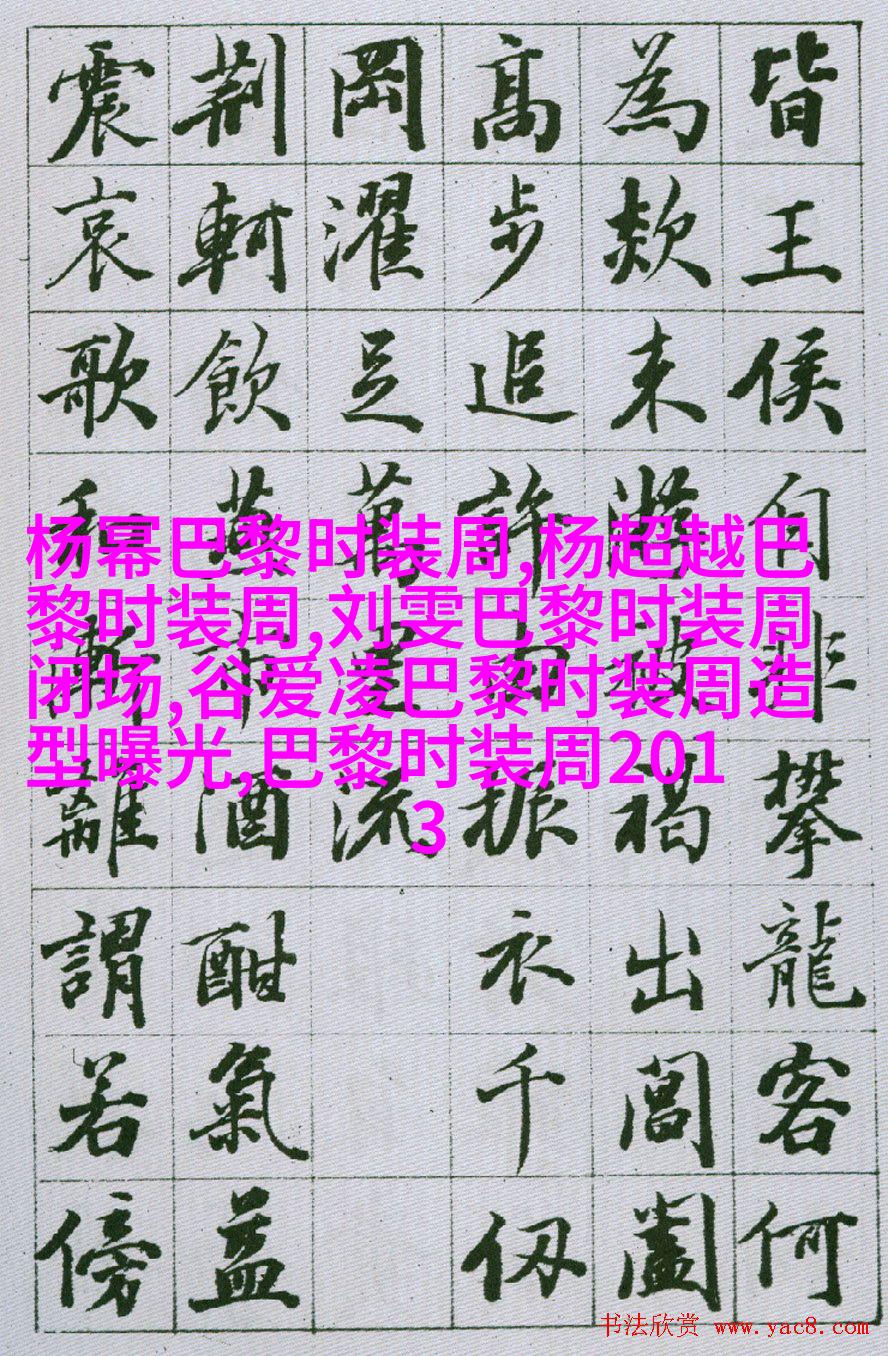 皆王侯自非攀龍客何
為欻来遊被褐出閶闔
高步追許由振衣千仞
岡濯足萬里流
荆軻飲燕市酒酣氣益
震哀歌和漸離謂若傍
杨幂巴黎时装周,杨超越巴
黎时装周,刘雯巴黎时装周
闭场,谷爱凌巴黎时装周造
型曝光,巴黎时装周201
3
书法欣赏 www.yac8.com